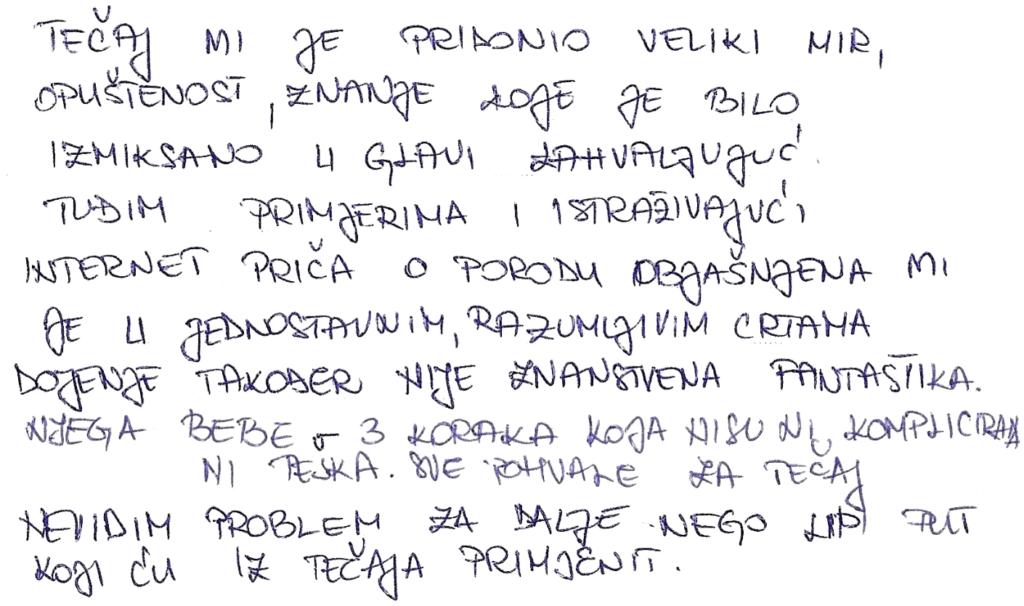 TEČAJ MI JE PRIDONIO VELIKI MIR,
OPUŠTENOST, ZNANJE KOJE JE BILO
IZMIKSANO U GLAVI ZAHVALJUJUĆ
TUĐIM PRIMJERIMA I ISTRAŽIVAJUĆI
INTERNET PRIČA O PORODU OBJAŠNJENA MI
JE U JEDNOSTAVNIM, RAZUMLJIVIM CRTAMA
DOJENJE TAKOĐER NIJE ZNANSTVENA FANTASTIKA.
NJEGA BEBE U 3 KORAKA KOJA NISU NI KOMPLICIRANA
NI TEŠKA. SVE POHVALE ZA TEČAJ
NEVIDIM PROBLEM ZA DALJE NEGO LIPI PUT
KOJI ĆU IZ TEČAJA PRIMJENIT.